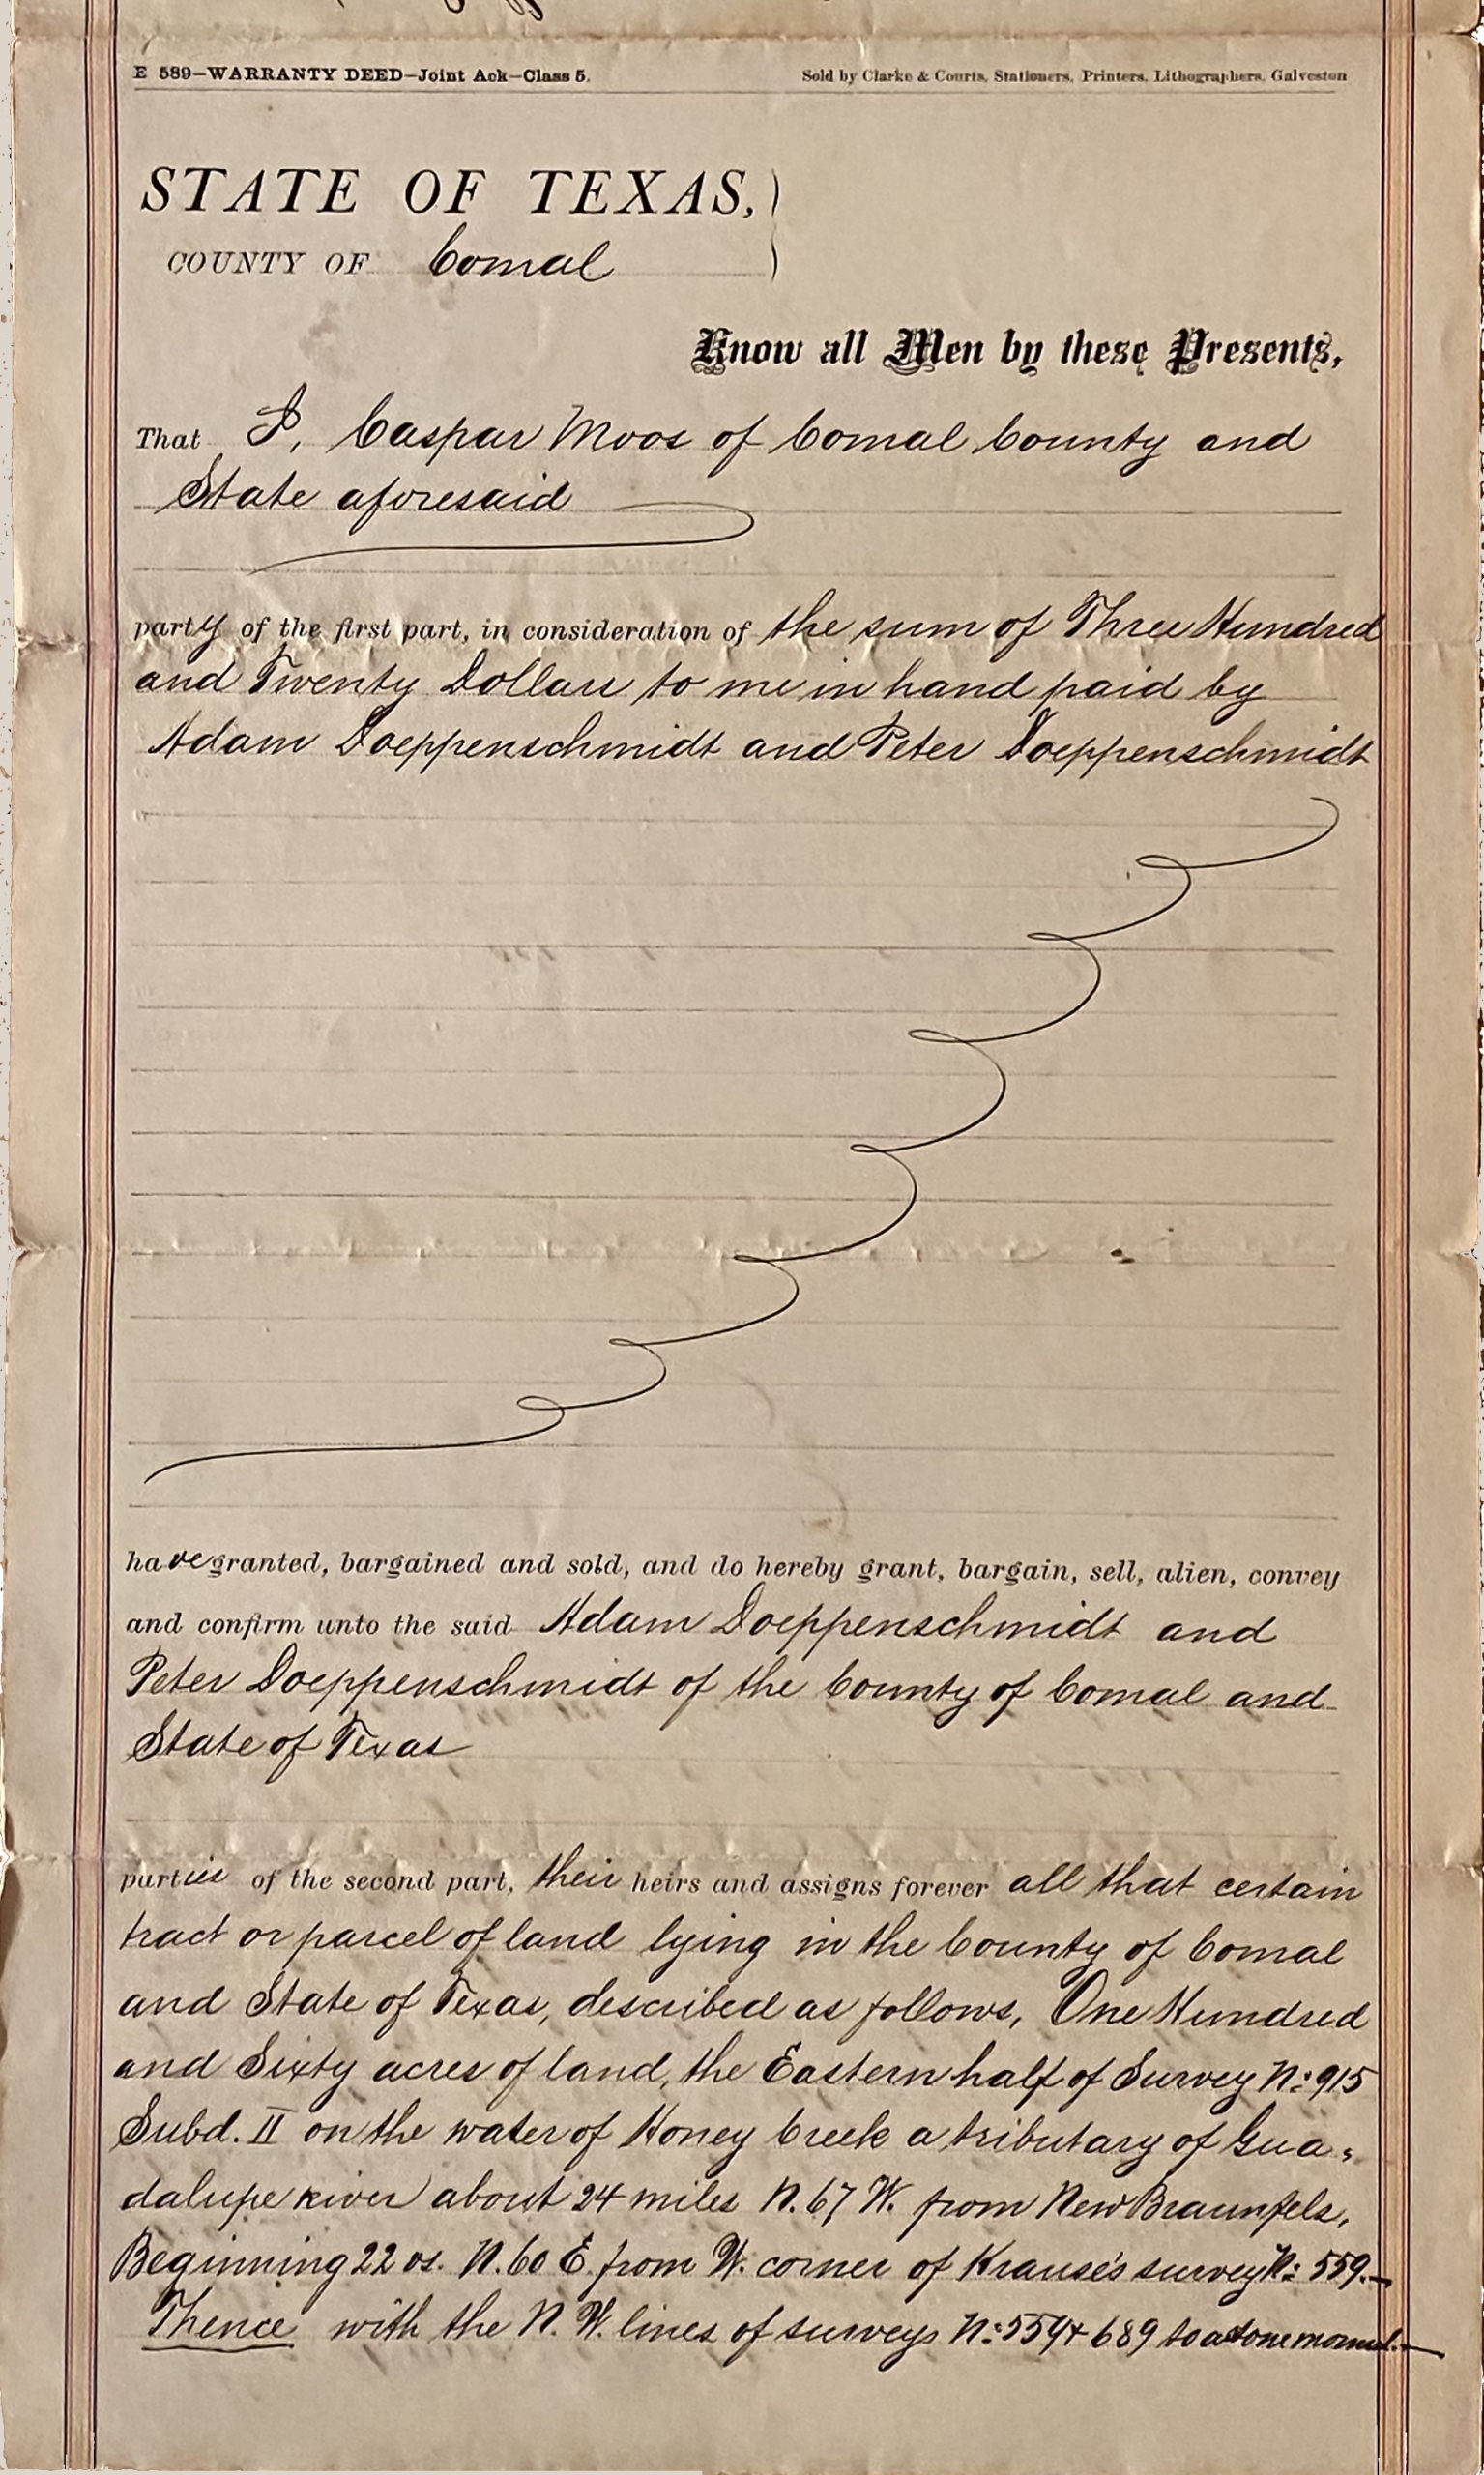 E 589—WARRANTY DEED—Joint Ack—Class 5.
Sold by Clarke & Courts, Stationers, Printers, Lithographers, Galveston
STATE OF TEXAS,
COUNTY OF Comal
Know all Men by these Presents,
That I, Caspar Moos of Comal County and
State aforesaid
party of the first part, in consideration of the sum of Three Hundred
and Twenty Dollars to me in hand paid by
Adam Doeppenschmidt and Peter Doeppenschmidt
have granted, bargained and sold, and do hereby grant, bargain, sell, alien, convey
and confirm unto the said Adam Doeppenschmidt and
Peter Doeppenschmidt of the County of Comal and
State of Texas
parties of the second part, their heirs and assigns forever all that certain
tract or parcel of land lying in the County of Comal
and State of Texas, described as follows, One Hundred
and Sixty acres of land, the Eastern half of Survey No: 915
Subd. II on the water of Honey Creek a tributary of Gua-
dalupe river about 24 miles N. 67 W. from New Braunfels,
Beginning 22 vs. N. 60 E. from W. corner of Krause's survey No: 559.—
Thence with the N. W. lines of surveys No: 559 & 689 to a stone mound.—